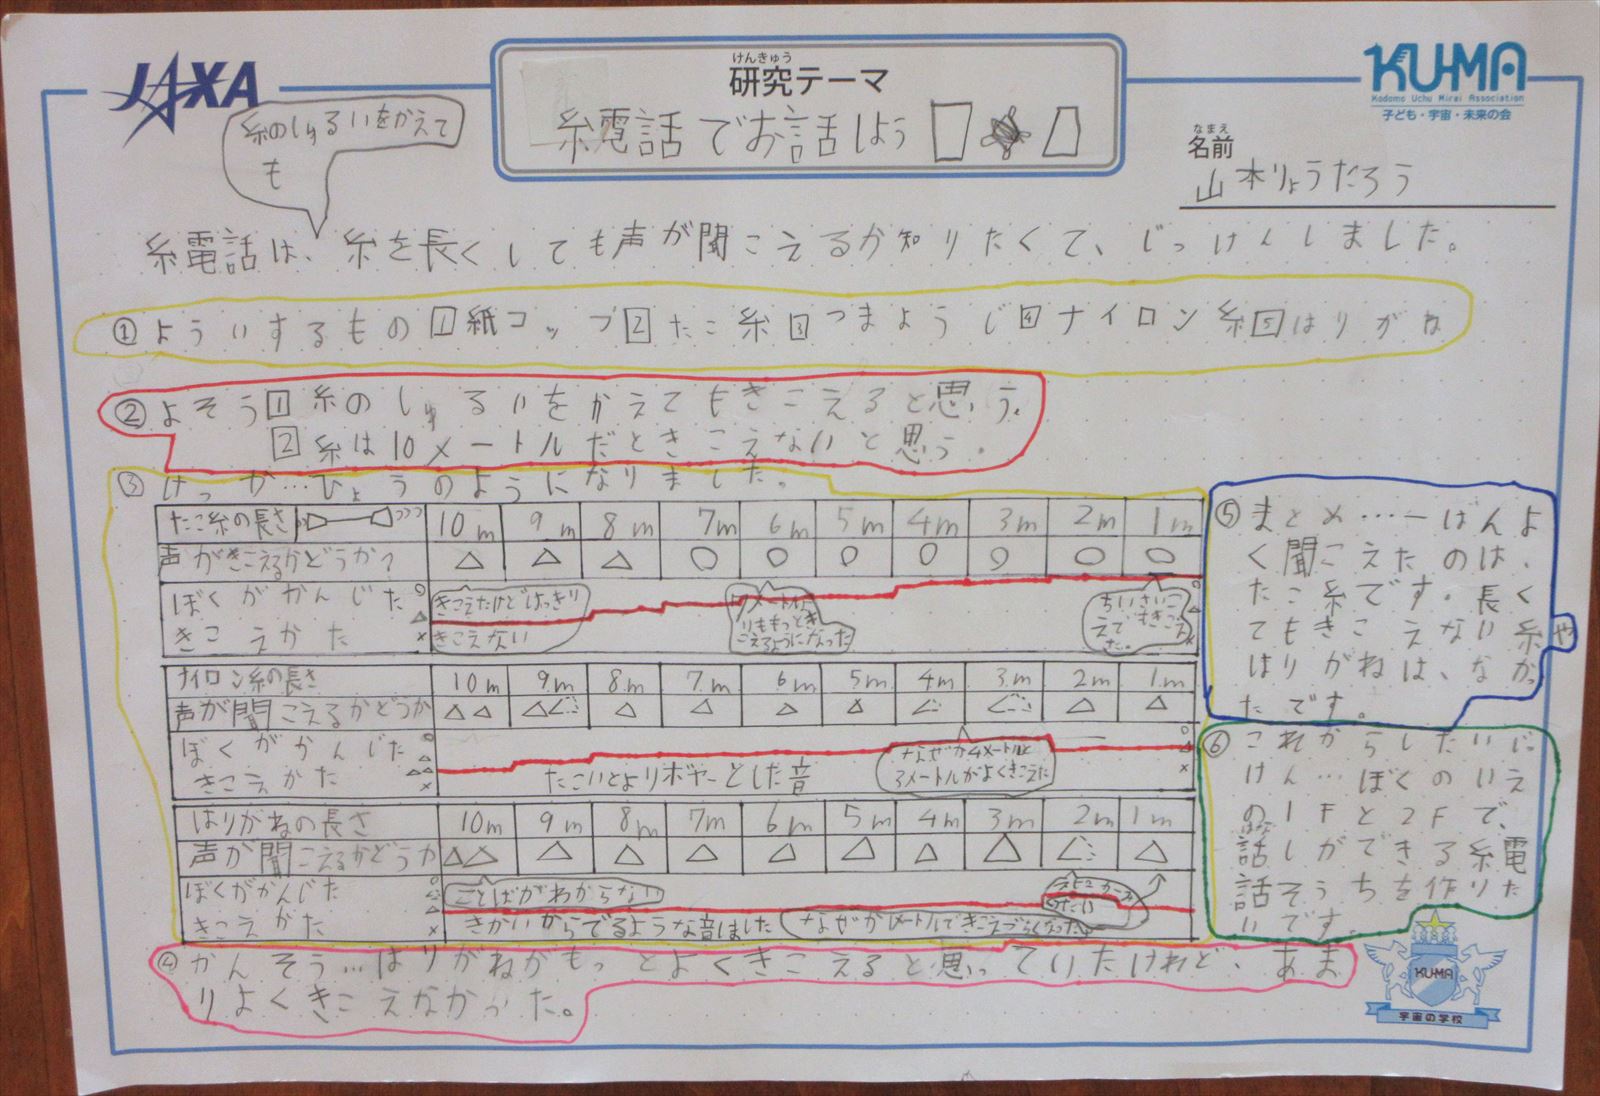 JAXA
けんきゅう
研究テーマ
糸電話でお話しよう
KU-MA
Kodomo Uchu Mirai Association
子ども・宇宙・未来の会
なまえ
名前
山本りょうたろう
糸のしゅるいをかえて
も
糸電話は、糸を長くしても声が聞こえるか知りたくて、じっけんしました。
①よういするもの1紙コップ2たこ糸3つまようじ4ナイロン糸5はりがね
②よそう1糸のしゅるいをかえてもきこえると思う。
2糸は10メートルだときこえないと思う。
③けっか…ひょうのようになりました。
たこ糸の長さ 10m 9m 8m 7m 6m 5m 4m 3m 2m 1m
声がきこえるかどうか? △ △ △ ○ ○ ○ ○ ○ ○ ○
ぼくがかんじた
きこえかた
○
△
×
きこえたけどはっきり
きこえない
ちいさいこ
えでもきこえ
た。
ナイロン糸の長さ 10m 9m 8m 7m 6m 5m 4m 3m 2m 1m
声が聞こえるかどうか
ぼくがかんじた
きこえかた
たこいとよりボヤーとした音
なぜか4メートルと
3メートルがよくきこえた
はりがねの長さ 10m 9m 8m 7m 6m 5m 4m 3m 2m 1m
声が聞こえるかどうか
ぼくがかんじた
きこえかた
ことばがわからない
きかいからでるような音はした
④かんそう…はりがねがもっとよくきこえると思っていたけれど、あま
りよくきこえなかった。
⑤まとめ…一ばんよ
く聞こえたのは、
たこ糸です。長く
てもきこえない糸や
はりがねは、なかっ
たです。
⑥これからしたいじっ
けん…ぼくのいえ
の1Fと2Fで、
話しができる糸電
話そうちを作りた
いです。
KU-MA
宇宙の学校